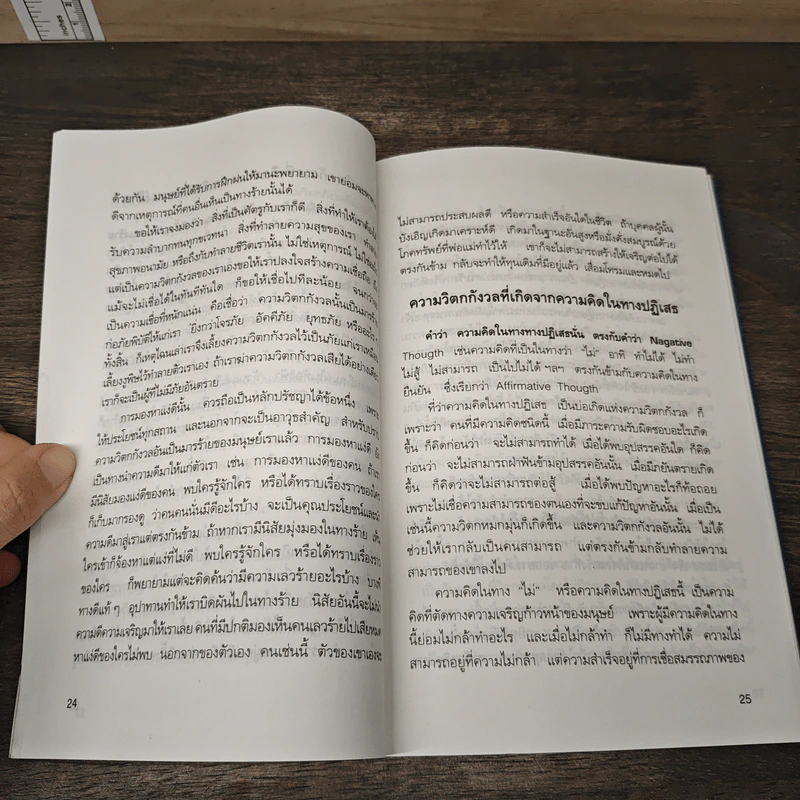 inches
1
2
ด้วยกัน มนุษย์ที่ได้รับการฝึกฝนให้มานะพยายาม เขาย่อมจะหา
ดีจากเหตุการณ์ที่คนอื่นเห็นเป็นทางร้ายนั้นได้
ขอให้เราจงมองว่า สิ่งที่เป็นศัตรูกับเราก็ดี สิ่งที่ทำให้เราต้อง
รับความลำบากทนทุกขเวทนา สิ่งที่ทำลายความสุขของเรา
สุขภาพอนามัย หรือถึงกับทำลายชีวิตเรานั้น ไม่ใช่เหตุการณ์
แต่เป็นความวิตกกังวลของเราเองขอให้เราปลงใจสร้างความเชื่อถือ
แม้จะไม่เชื่อได้ในทันทีทันใด ก็ขอให้เชื่อไปทีละน้อย จน
เป็นความเชื่อที่หนักแน่น คือเชื่อว่า ความวิตกกังวลนั้นเป็นมาร
ก่อภัยพิบัติให้แก่เรา ยิ่งกว่าโจรภัย อัคคีภัย ยุทธภัย หรือ
ทั้งสิ้น ก็เหตุไฉนเล่าเราจึงเลี้ยงความวิตกกังวลไว้เป็นภัยแก่เรา
เลี้ยงงูพิษไว้ทำลายตัวเราเอง ถ้าเราฆ่าความวิตกกังวลเสียได้อย่าง
เราก็จะเป็นผู้ที่ไม่มีภัยอันตราย
การมองหาแง่ดีนั้น ควรถือเป็นหลักปรัชญาได้ข้อหนึ่ง เพราะ
ให้ประโยชน์ทุกสถาน และนอกจากจะเป็นอาวุธสำคัญ สำหรับ
ความวิตกกังวลอันเป็นมารร้ายของมนุษย์เราแล้ว การมองหาแง่ดี
เป็นทางนำความดีมาให้แก่ตัวเรา เช่น การมองหาแง่ดีของคน ถ้า
มีนิสัยมองแง่ดีของคน พบใครรู้จักใคร หรือได้ทราบเรื่องราวของใคร
ก็เก็บมากรองดู ว่าคนคนนั้นมีดีอะไรบ้าง จะเป็นคุณประโยชน์และ
ความดีมาสู่เราแต่ตรงกันข้าม ถ้าหากเรามีนิสัยมุ่งมองในทางร้าย
ใครเข้าก็จ้องหาแต่แง่ที่ไม่ดี พบใครรู้จักใคร หรือได้ทราบเรื่องราว
ของใคร ก็พยายามแต่จะคิดค้นว่ามีความเลวร้ายอะไรบ้าง บาง
ทางดีแท้ ๆ อุปาทานทำให้เราบิดผันไปในทางร้าย นิสัยอันนี้จะไม่
ความดีความเจริญมาให้เราเลย คนที่มีปกติมองเห็นคนเลวร้ายไปเสียหมด
หาแง่ดีของใครไม่พบ นอกจากของตัวเอง คนเช่นนี้ ตัวของเขาเองจะ
24
ไม่สามารถประสบผลดี หรือความสำเร็จอันใดในชีวิต ถ้าบุคคลผู้นั้น
บังเอิญเกิดมาเคราะห์ดี เกิดมาในฐานะอันสูงหรือมั่งคั่งสมบูรณ์ด้วย
โภคทรัพย์ที่พ่อแม่ทำไว้ให้ เขาก็จะไม่สามารถสร้างให้เจริญต่อไปได้
ตรงกันข้าม กลับจะทำให้ทุนเดิมที่มีอยู่แล้ว เสื่อมโทรมและหมดไป
ความวิตกกังวลที่เกิดจากความคิดในทางปฏิเสธ
คำว่า ความคิดในทางทางปฏิเสธนั้น ตรงกับคำว่า Nagative
Thougth เช่นความคิดที่เป็นในทางว่า "ไม่" อาทิ ทำไม่ได้ ไม่ทำ
ไม่สู้ ไม่สามารถ เป็นไปไม่ได้ ฯลฯ ตรงกันข้ามกับความคิดในทาง
ยืนยัน ซึ่งเรียกว่า Affirmative Thougth
ที่ว่าความคิดในทางปฏิเสธ เป็นบ่อเกิดแห่งความวิตกกังวล ก็
เพราะว่า คนที่มีความคิดชนิดนี้ เมื่อมีภาระความรับผิดชอบอะไรเกิด
ขึ้น ก็คิดก่อนว่า จะไม่สามารถทำได้ เมื่อได้พบอุปสรรคอันใด ก็คิด
ก่อนว่า จะไม่สามารถฝ่าฟันข้ามอุปสรรคอันนั้น เมื่อมีภยันตรายเกิด
ขึ้น ก็คิดว่าจะไม่สามารถต่อสู้ เมื่อได้พบปัญหาอะไรก็ท้อถอย
เพราะไม่เชื่อความสามารถของตนเองที่จะขบแก้ปัญหาอันนั้น เมื่อเป็น
เช่นนี้ความวิตกหมกมุ่นก็เกิดขึ้น และความวิตกกังวลอันนั้น ไม่ได้
ช่วยให้เรากลับเป็นคนสามารถ แต่ตรงกันข้ามกลับทำลายความ
สามารถของเขาลงไป
ความคิดในทาง "ไม่" หรือความคิดในทางปฏิเสธนี้ เป็นความ
คิดที่ตัดทางความเจริญก้าวหน้าของมนุษย์ เพราะผู้มีความคิดในทาง
นี้ย่อมไม่กล้าทำอะไร และเมื่อไม่กล้าทำ ก็ไม่มีทางทำได้ ความไม่
สามารถอยู่ที่ความไม่กล้า แต่ความสำเร็จอยู่ที่การเชื่อสมรรถภาพของ
25